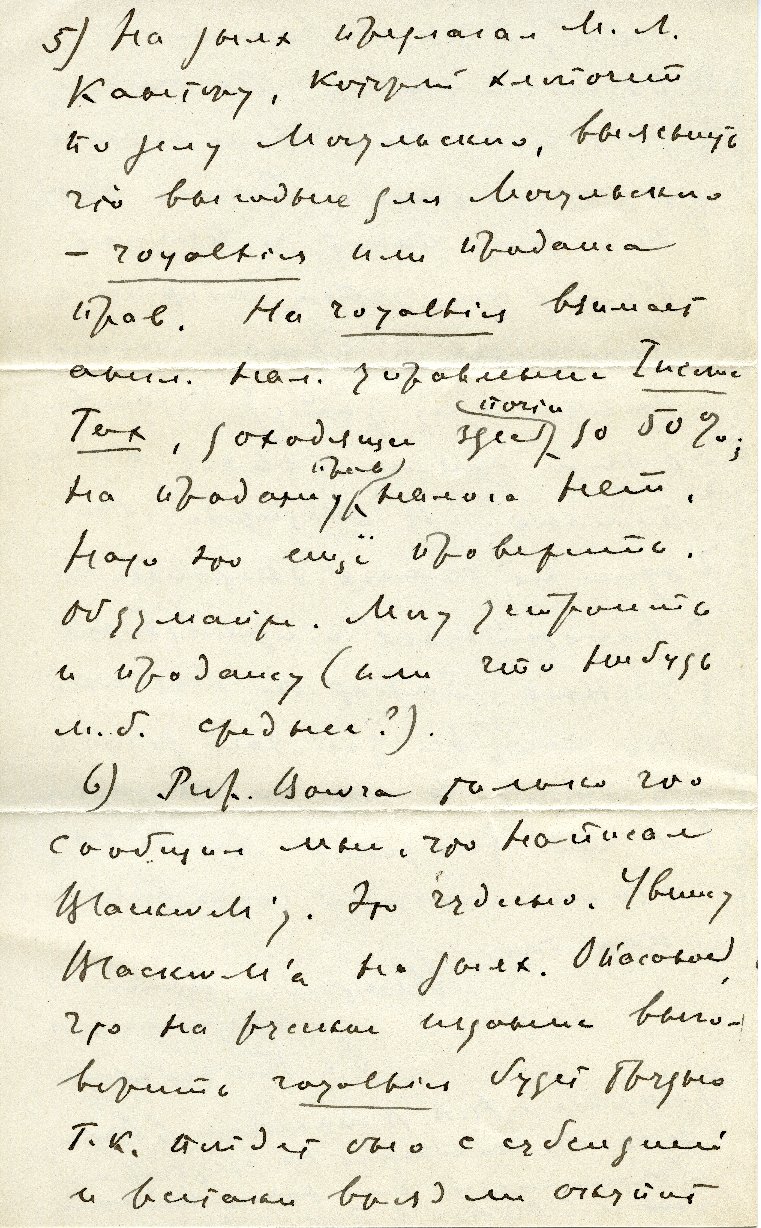 5) На днях предлагал М. Л.
Кантору, который хлопочет
по делу Мочульского, выяснить
что выгоднее для Мочульского
– royalties или продажа
прав. На royalties взимает
англ. нал. управление Income
Tax, доходящий здесь почти до 50%;
на продажу прав налога нет.
Надо это ещё проверить.
Обдумайте. Могу устроить
и продажу (или что нибудь
м.б. среднее?).
6) Prof. Bowra только что
сообщил мне, что написал
'у. Это чудесно. Увижу
'а на днях. Опасаюсь,
что на русское издание выго-
ворить royalties будет трудно
т.к. пойдет оно с субсидией
и всетаки врядли окупит